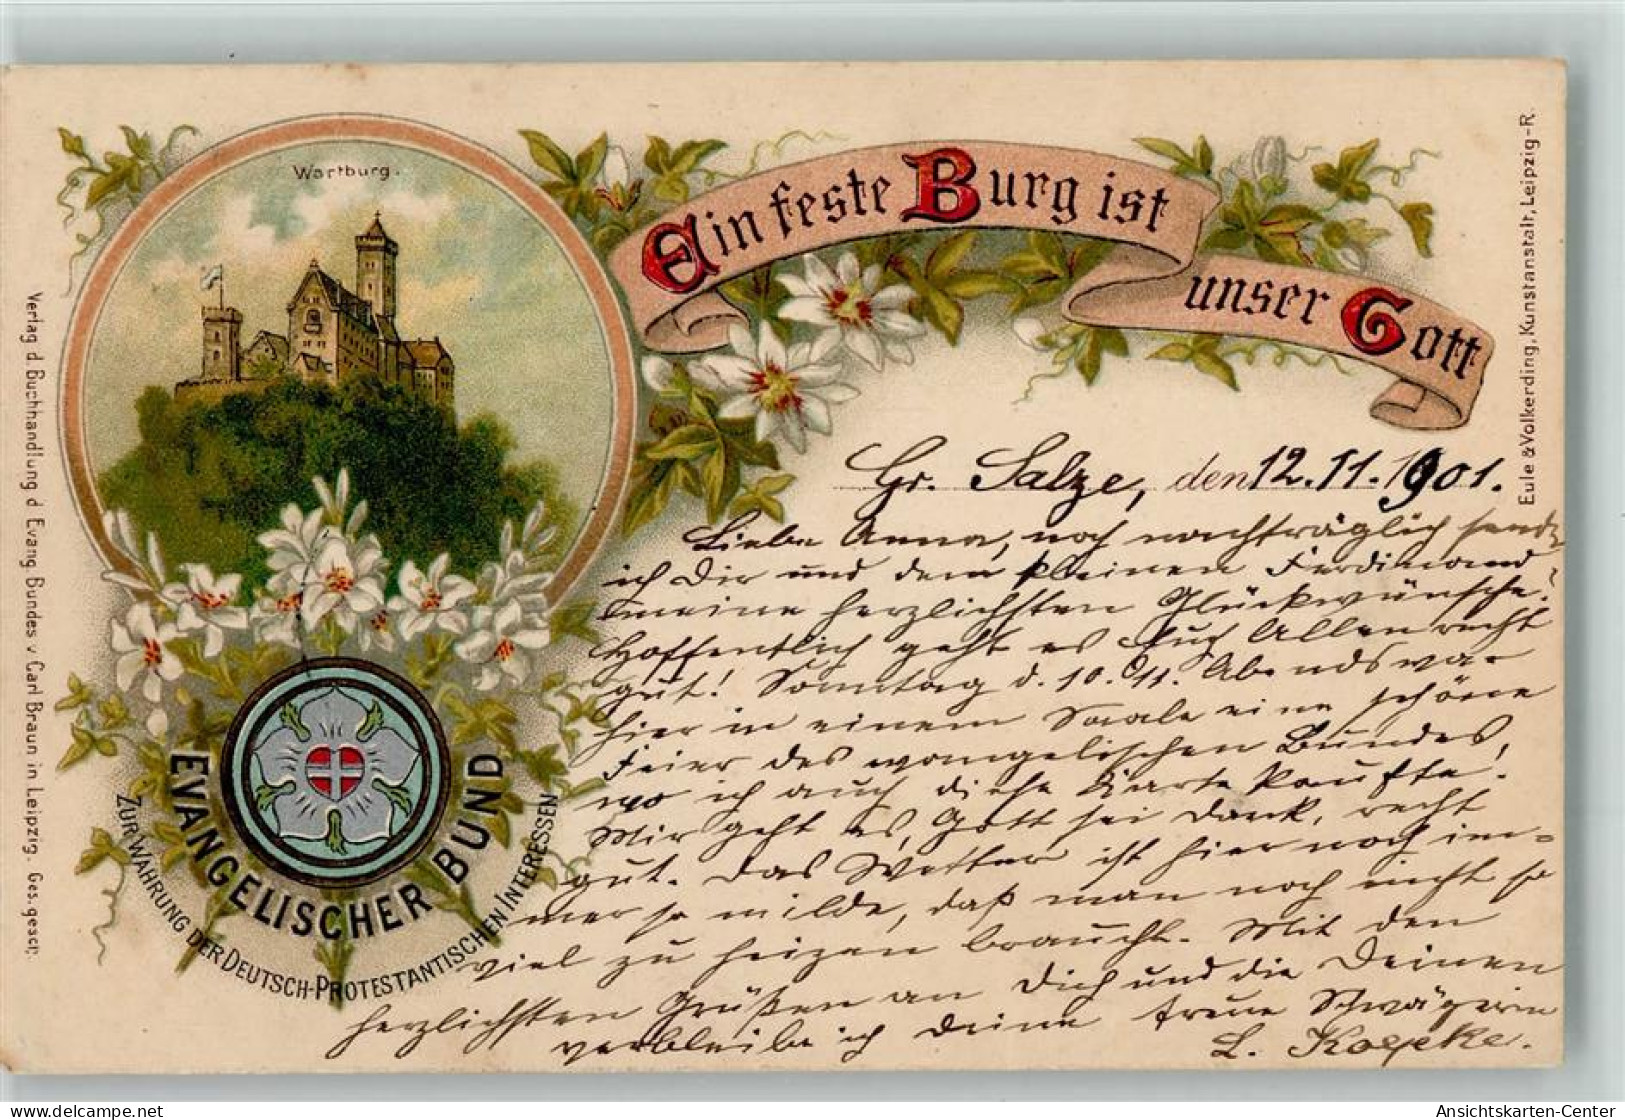 Wartburg.
Ein feste Burg ist
unser Gott
Gr. Salze, den 12.11.1901.
Liebe Anna, noch nachträglich sende
ich Dir und dem kleinen Ferdinand
meine herzlichsten Glückwünsche.
Hoffentlich geht es Euch Allen recht
gut! Sonntag d. 10. 11. Abends war
hier in einem Saale eine schöne
Feier des evangelischen Bundes,
wo ich auch diese Karte kaufte.
Mir geht es, Gott sei Dank, recht
gut. Das Wetter ist hier noch im-
mer so milde, daß man noch nicht so
viel zu heizen braucht. Mit den
herzlichsten Grüßen an Dich und die Deinen
verbleibe ich Deine treue Schwägerin
L. Koepke.
EVANGELISCHER BUND
ZUR WAHRUNG DER DEUTSCH-PROTESTANTISCHEN INTERESSEN
Verlag d. Buchhandlung d. Evang. Bundes v. Carl Braun in Leipzig. Ges. gesch.
Eule & Volkerding, Kunstanstalt, Leipzig-R.
www.ansichtskartenversand.com
Ansichtskarten-Center